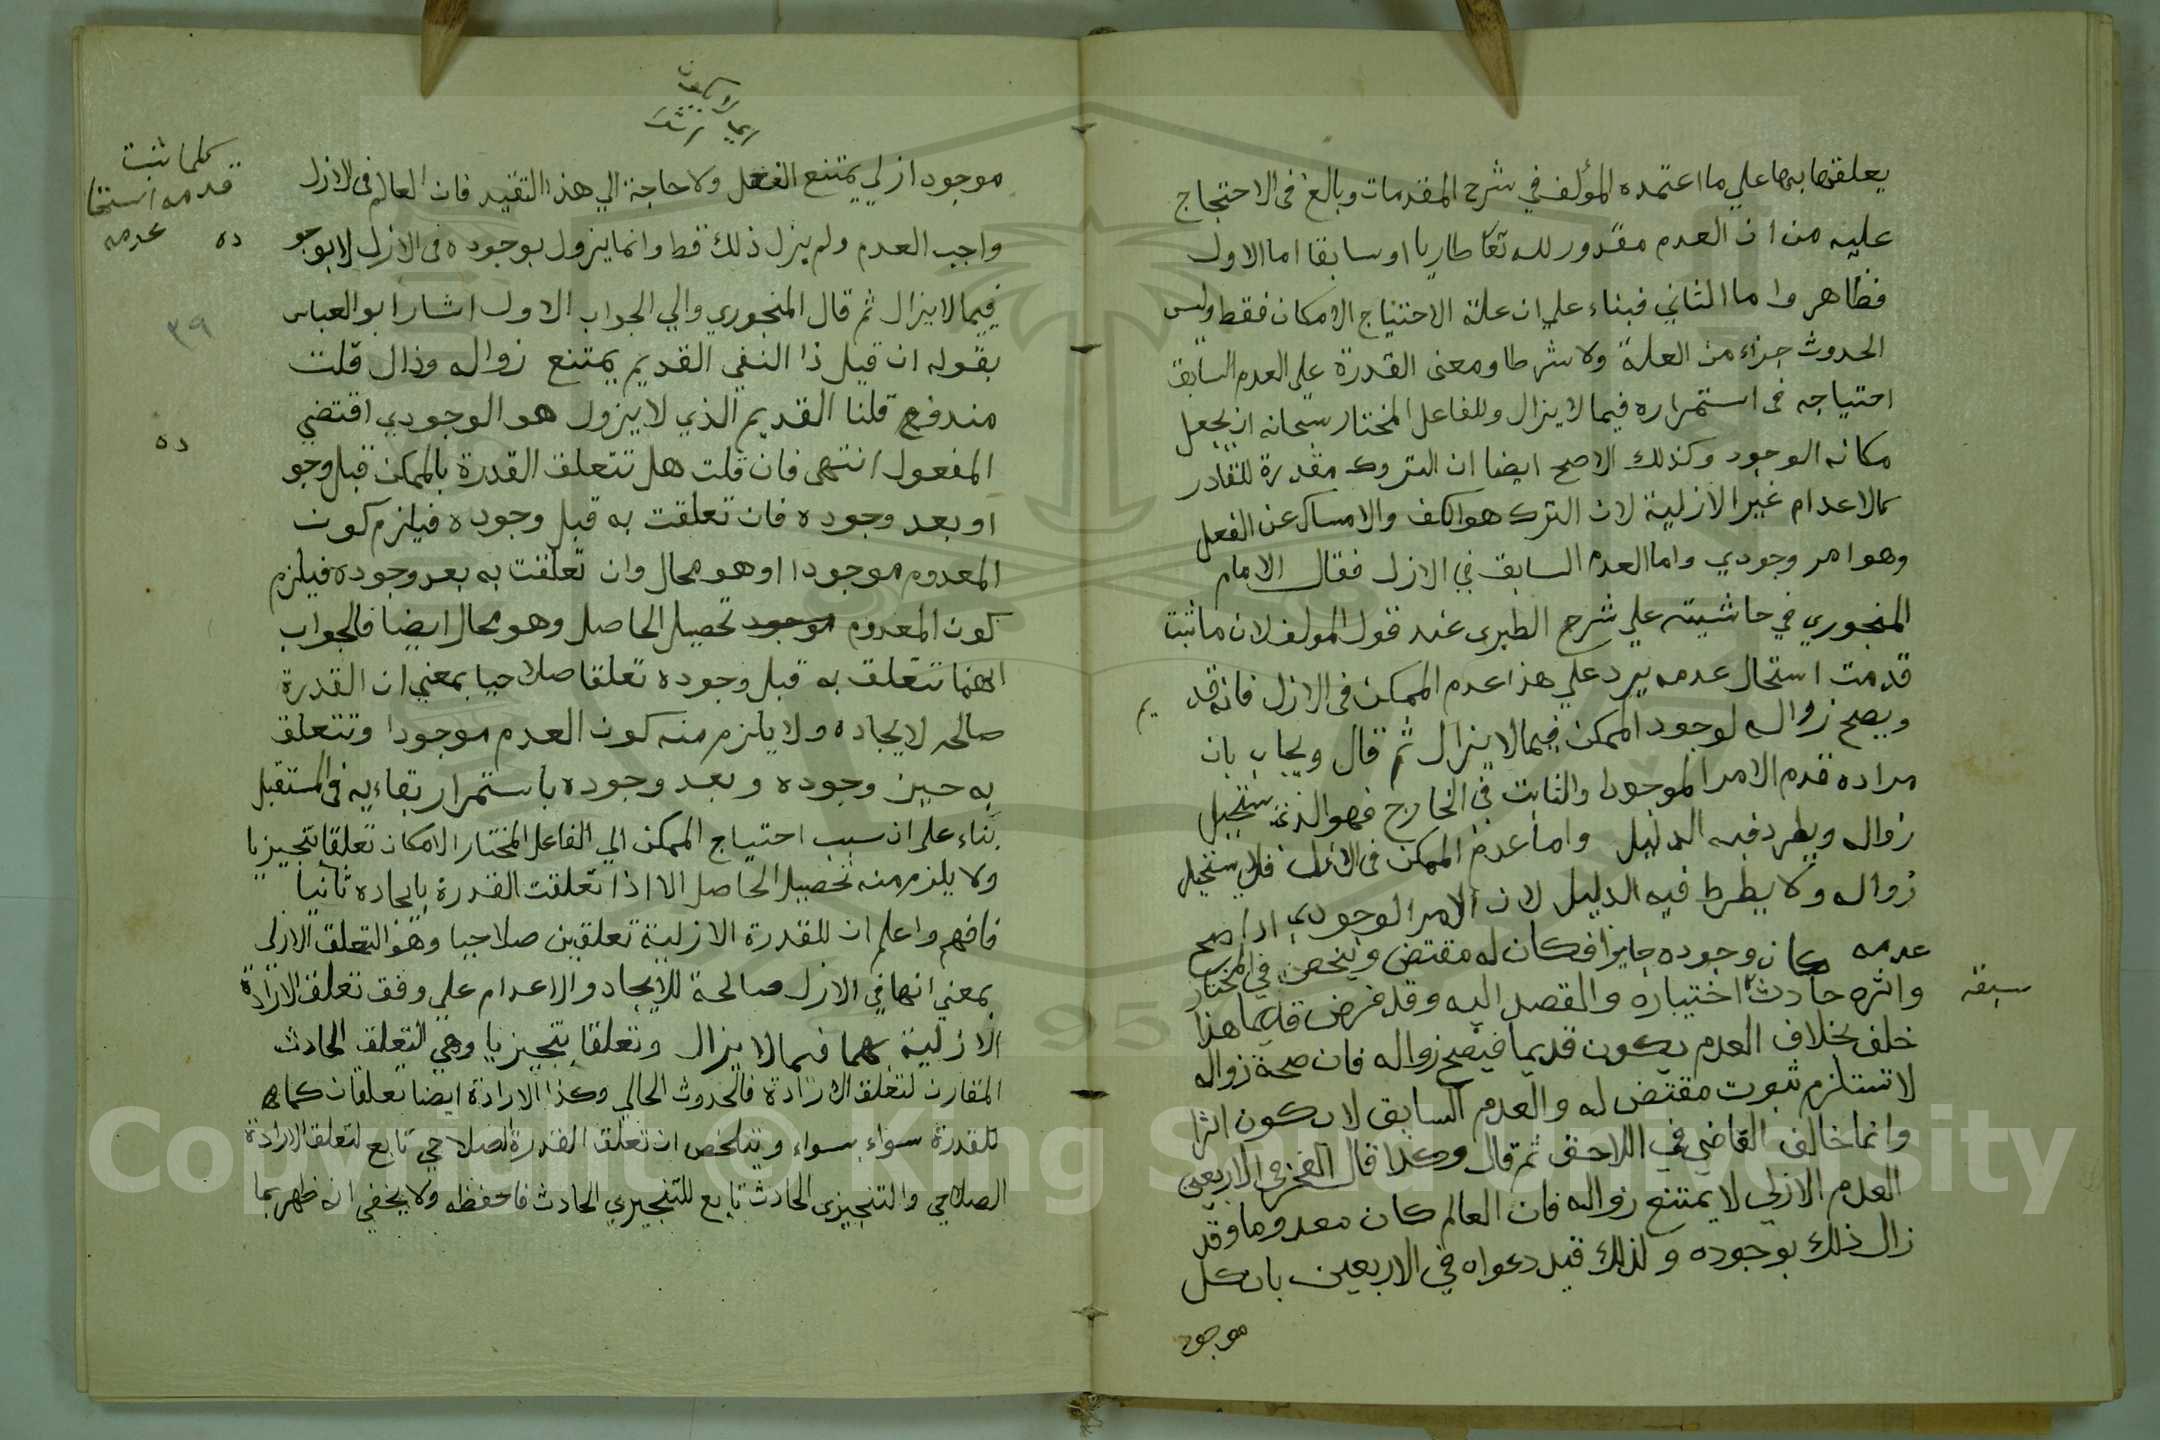 يعلقها بها علي ما اعتمده المؤلف في شرح المقدمات وبالغ في الاحتجاج
عليه من ان العدم مقدور لله تعا طاريا او سابقا اما الاول
فظاهر واما الثاني فبناء علي ان علة الاحتياج الامكان فقط وليس
الحدوث جزاء من العلة ولا شرطا ومعنى القدرة على العدم السابق
احتياجه في استمراره فيما لا يزال وللفاعل المختار سبحانه ان يجعل
مكانه الوجود وكذلك الاصح ايضا ان التروك مقدرة للقادر
كالاعدام غير الازلية لان الترك هو الكف والامساك عن الفعل
وهو امر وجودي واما العدم السابق في الازل فقال الامام
المنجوري في حاشيته علي شرح الطبرى عند قول المولف لان ما ثبت
قدمت استحال عدمه يرد علي هذا عدم الممكن فى الازل فانه قد يم
ويصح زواله لوجود الممكن فيما لا يزال ثم قال ويجاب بان
مراده قدم الامر الموجود والثابت في الخارج فهو الذي يستحيل
زواله ويطرد فيه الدليل واما عدم الممكن فى الازل فلا يستحيل
زواله ولا يطرط فيه الدليل لان الامر الوجودي اذا صح
عدمه كان وجوده جايزا فكان له مقتض وينحصر في المختار
واثره حادث اختياره والقصد اليه وقد فرض قديما هذا
سبقه
خلف بخلاف العدم يكون قديما فيصح زواله فان صحة زواله
لا تستلزم ثبوت مقتض له والعدم السابق لا يكون اثرا
وانما خالف القاضي في اللاحق ثم قال وكذا قال الفخر في الاربعين
العدم الازلي لا يمتنع زواله فان العالم كان معدوما وقد
زال ذلك بوجوده ولذلك قيد دعواه في الاربعين بان كل
موجود
موجود ازلي يمتنع ولا حاجة الي هذا التقيد فان العالم فى الازل
واجب العدم ولم يزل ذلك قط وانما يزول بوجوده فى الازل لا بوجو ده
فيما لا يزال ثم قال المنجوري والي الجواب الاول اشار ابو العباس
بقوله ان قيل ذا النفي القديم يمتنع زواله وذال قلت
مندفع قلنا القديم الذي لا يزول هو الوجودي اقتضي
المفعول انتهى فان قلت هل تتعلق القدرة بالممكن قبل وجو ده
او بعد وجوده فان تعلقت به قبل وجوده فيلزم كون
المعدوم موجودا وهو محال وان تعلقت به بعد وجوده فيلزم
كون المعدوم موجود تحصيل الحاصل وهو محال ايضا فالجواب
انها تتعلق به قبل وجوده تعلقا صلاحيا بمعني ان القدرة
صالحه لايجاده ولا يلزم منه كون العدم موجودا وتتعلق
به حين وجوده وبعد وجوده باستمرار بقاءيه في المستقبل
بناء على ان سبب احتياج الممكن الي الفاعل المختار الامكان تعلقا تنجيزيا
ولا يلزم منه تحصيل الحاصل الا اذا تعلقت القدرة بايجاده ثانيا
فافهم واعلم ان للقدرة الازلية تعلقين صلاحيا وهو التعلق الازلي
بمعني انها في الازل صالحة للايجاد والاعدام علي وفق تعلق الارادة
الازلية بهما فيما لا يزال وتعلقا تنجيزيا وهي التعلق الحادث
المقارن لتعلق الارادة فالحدوث الحالي وكذا الارادة ايضا تعلقان كما
للقدرة سواء بسواء ويتلخص ان تعلق القدرة الصلاحي تابع لتعلق الارادة
الصلاحي والتنجيزى الحادث تابع للتنجيزي الحادث فاحفظه ولا يخفي انه ظهر بما
كلما ثبت
قدمه استحا
عدمه
٣٩
Copyright © King Saud University